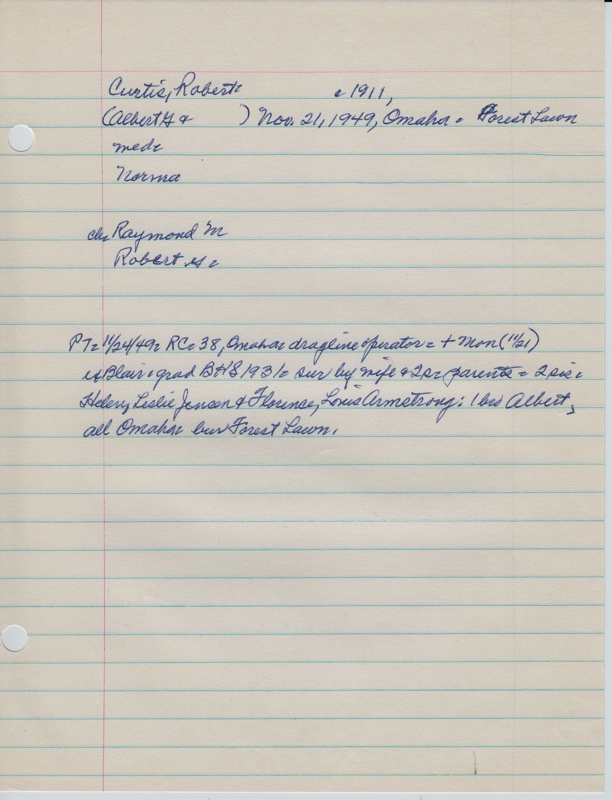 Curtis, Robert c 1911,
(Albert G & ) Nov. 21, 1949, Omaha = Forest Lawn
med=
Norma
ch= Raymond M
Robert G=
PT= 11/24/49= RC= 38, Omaha= dragline operator = + Mon (11/21)
ex Blair = grad BHS 1931= sur by wife & 2s= parents = 2 sis =
Helen, Leslie Jensen & Florence, Louis Armstrong: 1 bro Albert,
all Omaha= bur Forest Lawn.